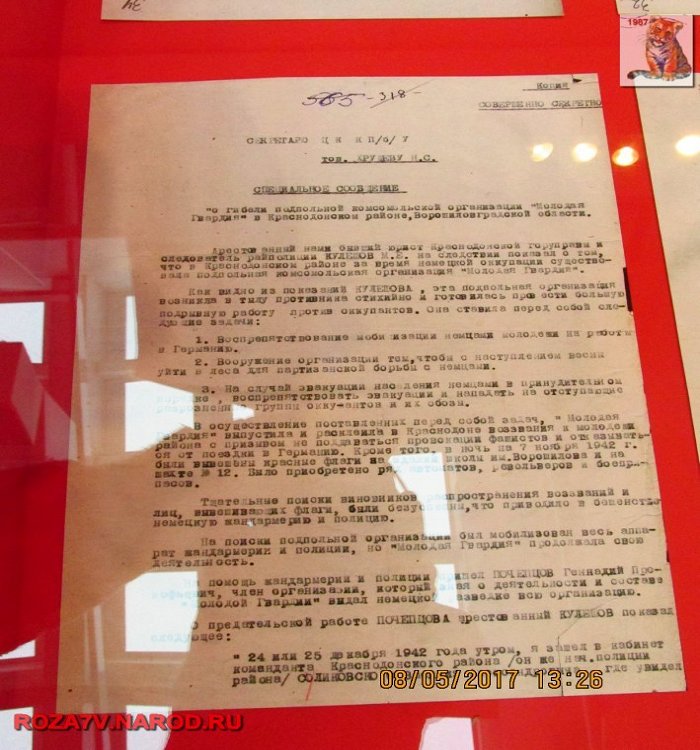 34
32
1987
565-318-
Копия
СОВЕРШЕННО СЕКРЕТНО
СЕКРЕТАРЮ Ц К КП/б/ У
тов. ХРУЩЕВУ Н.С.
СПЕЦИАЛЬНОЕ СООБЩЕНИЕ
"о гибели подпольной комсомольской организации "Молодая
Гвардия" в Краснодонском районе,Ворошиловградской области.
Арестованный нами бывший юрист Краснодонской горуправы и
следователь райполиции КУЛЕШОВ М.Е. на следствии показал о том,
что в Краснодонском районе за время немецкой оккупации существо-
вала подпольная комсомольская организация "Молодая Гвардия".
Как видно из показаний КУЛЕШОВА , эта подпольная организация
возникла в тылу противника стихийно и готовилась провести большую
подрывную работу против оккупантов. Она ставила перед собой сле-
дующие задачи:
1. Воспрепятствование мобилизации немцами молодежи на работы
в Германию.
2. Вооружение организации тем,чтобы с наступлением весны
уйти в леса для партизанской борьбы с немцами.
3. На случай эвакуации населения немцами в принудительном
порядке , воспрепятствовать эвакуации и нападать на отступающие
группы оккупантов и их обозы.
В осуществление поставленных перед собой задач, " Молодая
Гвардия" выпустила и расклеила в Краснодоне воззвания к молодежи
района с призывом не поддаваться провокации фашистов и отказывать-
ся от поездки в Германию. Кроме того, в ночь на 7 ноября 1942 г.
были вывешены красные флаги на здании школы им.Ворошилова и на
шахте № 12. Было приобретено ряд автоматов, револьверов и боепри-
пасов.
Тщательные поиски виновников распространения воззваний и
лиц, вывешивающих флаги, были безуспешны,что приводило в бешенство
немецкую жандармерию и полицию.
На поиски подпольной организации был мобилизован весь аппа-
рат жандармерии и полиции, но "Молодая Гвардия" продолжала свою
деятельность.
На помощь жандармерии и полиции пришел ПОЧЕПЦОВ Геннадий Про-
кофьевич, член организации, который зная о деятельности и составе
"Молодой Гвардии" выдал немецкой разведке всю организацию.
О предательской работе ПОЧЕПЦОВА арестованный КУЛЕШОВ показал
следующее:
" 24 или 25 декабря 1942 года утром, я зашел в кабинет
коменданта Краснодонского района /он же нач.полиции
района/ СОЛИКОВСКОГО где увидал
08/05/2017 13:26
ROZAYV.NAROD.RU